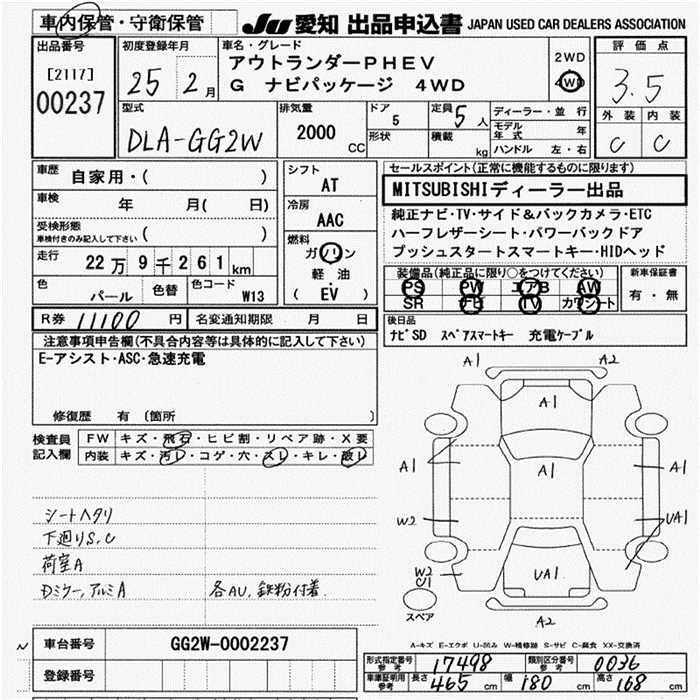 車内保管・守衛保管
JU 愛知 出品申込書 JAPAN USED CAR DEALERS ASSOCIATION
出品番号
[2117]
00237
初度登録年月
25年2月
車名・グレード
アウトランダーPHEV
G ナビパッケージ 4WD
2WD
4WD
評価点
3.5
外装 内装
C C
型式
DLA-GG2W
排気量
2000 CC
ドア
5
形状
定員
5人
積載
kg
ディーラー・並行
モデル年式 年
ハンドル 左・右
車歴
自家用・( )
車検
年 月( 日)
受検形態
車検付きのみ記入して下さい ( )
走行
22万9千261km
色
パール
色替
色コード
W13
シフト
AT
冷房
AAC
燃料
ガソリン
軽油
・
( EV )
セールスポイント(正常に機能するものに限ります)
MITSUBISHIディーラー出品
純正ナビ・TV・サイド&バックカメラ・ETC
ハーフレザーシート・パワーバックドア
プッシュスタートスマートキー・HIDヘッド
装備品(純正品に限り○をつけてください)
PS PW エアB AW
SR ナビ TV カワシート
新車保証書
有・無
R券 11100円
名変通知期限 月 日
後日品
ナビSD スペアスマートキー 充電ケーブル
注意事項申告欄(不具合内容等は具体的に記入して下さい)
E-アシスト・ASC・急速充電
修復歴 有 (箇所 )
検査員記入欄
FW キズ・飛石・ヒビ割・リペア跡・X要
内装 キズ・汚レ・コゲ・穴・スレ・キレ・破レ
シートヘタリ
下廻りS,C
荷室A
Dミラー,アルミA
各AU,鉄粉付着.
A1 A2
A1
A1 A1 A1
W2 UA1
W2
U1
UA1
スペア
A2
A-キズ E-エクボ U-凹み W-補修跡 S-サビ C-腐食 XX-交換済
車台番号 GG2W-0002237
登録番号
形式指定番号 参考 17498
類別区分番号 参考 0036
車庫証明用 参考 長さ 465 cm 幅 180 cm 高さ 168 cm